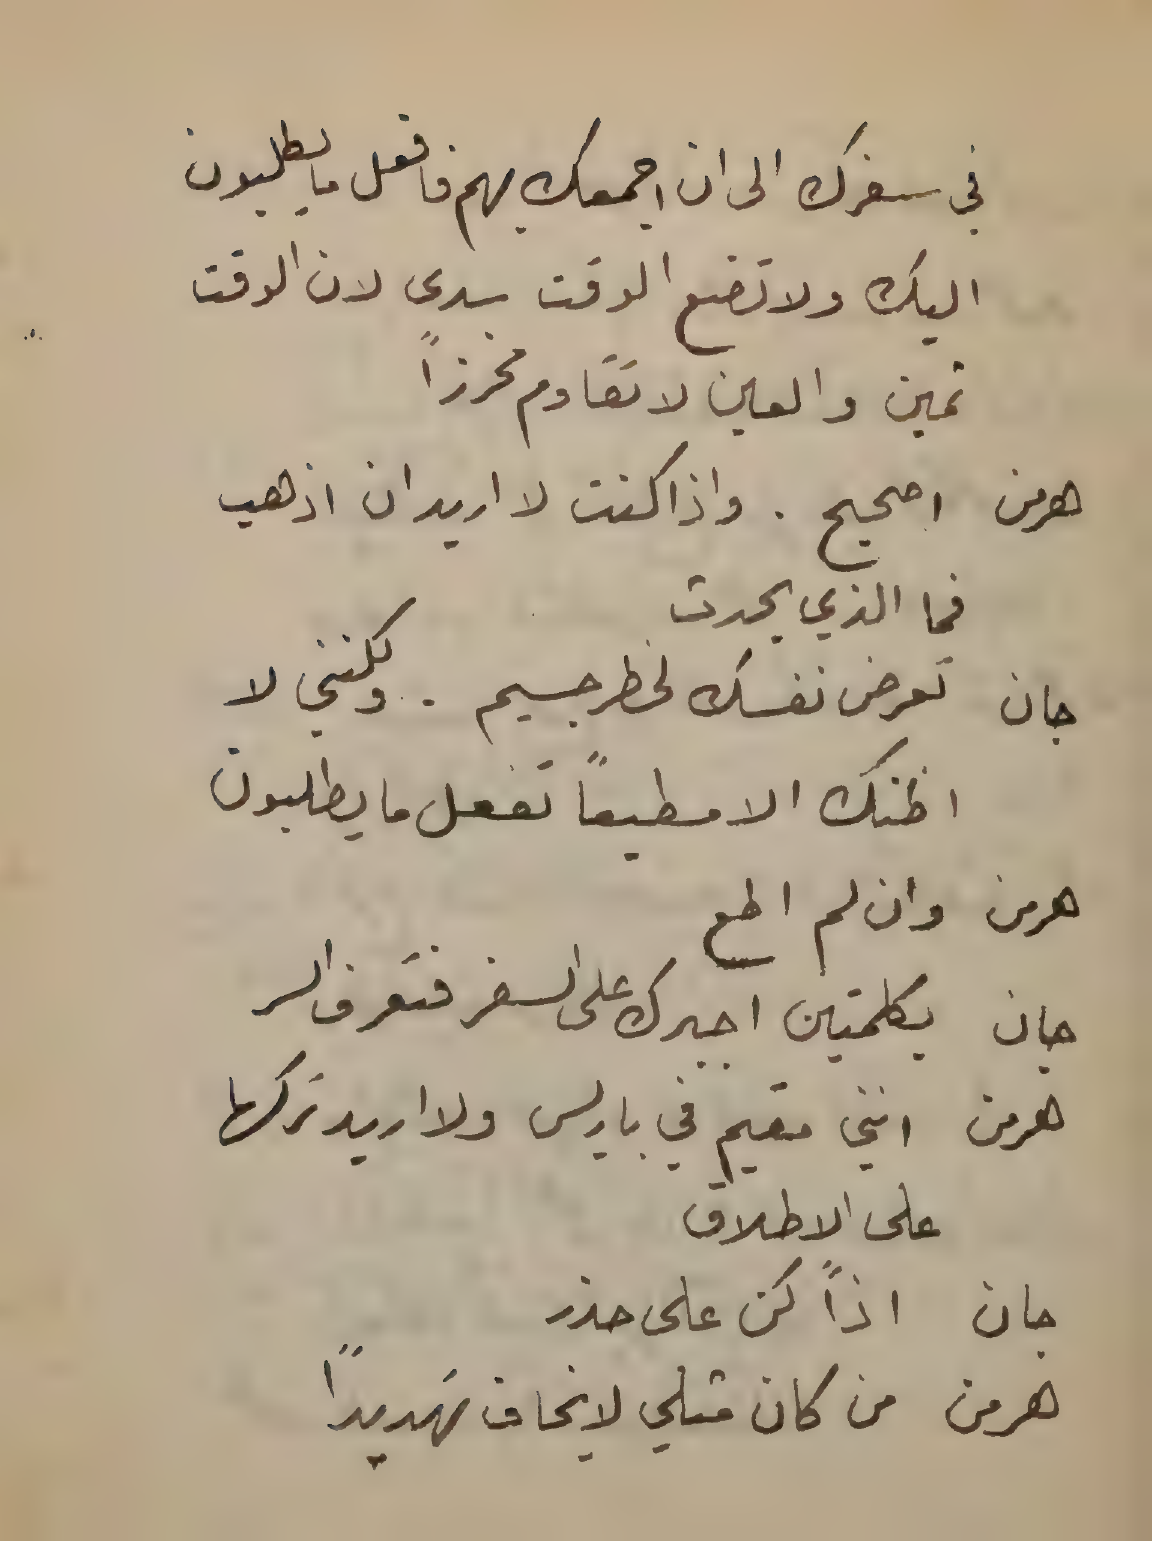 في سفرك الى ان اجمعك بهم فافعل ما يطلبون
اليك ولا تضع الوقت سدى لان الوقت
ثمين والعين لا تقاوم مخرزاً
هرمن اصحيح . واذا كنت لا اريد ان اذهب
فما الذي يحدث
جان تعرض نفسك لخطر جسيم . ولكنني لا
اظنك الا مطيعاً تفعل ما يطلبون
هرمن وان لم اطع
جان بكلمتين اجبرك على السفر فتعرف السر
هرمن انني مقيم في باريس ولا اريد تركها
على الاطلاق
جان اذاً كن على حذر
هرمن من كان مثلي لا يخاف تهديداً